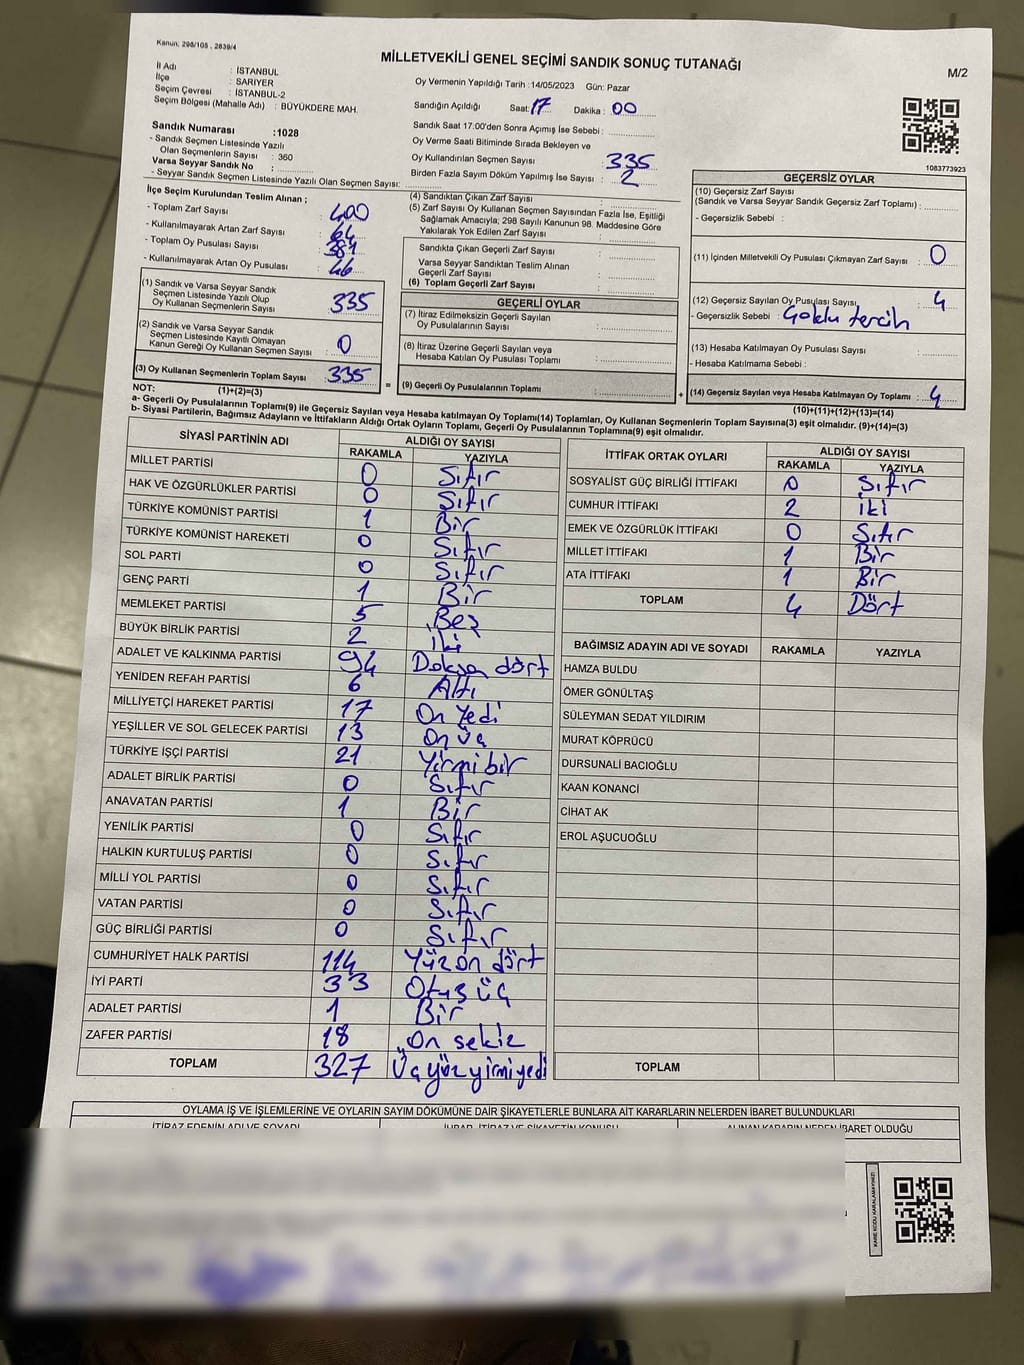 Kanun: 298/105 , 2839/4
MİLLETVEKİLİ GENEL SEÇİMİ SANDIK SONUÇ TUTANAĞI
M/2
İl Adı : İSTANBUL
İlçe : SARIYER
Seçim Çevresi : İSTANBUL-2
Seçim Bölgesi (Mahalle Adı) : BÜYÜKDERE MAH.
Sandık Numarası :1028
- Sandık Seçmen Listesinde Yazılı
Olan Seçmenlerin Sayısı : 360
Varsa Seyyar Sandık No :
- Seyyar Sandık Seçmen Listesinde Yazılı Olan Seçmen Sayısı:
Oy Vermenin Yapıldığı Tarih :14/05/2023 Gün: Pazar
Sandığın Açıldığı Saat: 17 Dakika : 00
Sandık Saat 17:00'den Sonra Açımış İse Sebebi :
Oy Verme Saati Bitiminde Sırada Bekleyen ve
Oy Kullandırılan Seçmen Sayısı : 335
Birden Fazla Sayım Döküm Yapılmış İse Sayısı : 2
1083773923
İlçe Seçim Kurulundan Teslim Alınan ;
- Toplam Zarf Sayısı : 400
- Kullanılmayarak Artan Zarf Sayısı : 64
- Toplam Oy Pusulası Sayısı : 381
- Kullanılmayarak Artan Oy Pusulası : 46
(1) Sandık ve Varsa Seyyar Sandık
Seçmen Listesinde Yazılı Olup
Oy Kullanan Seçmenlerin Sayısı : 335
(2) Sandık ve Varsa Seyyar Sandık
Seçmen Listesinde Kayıtlı Olmayan
Kanun Gereği Oy Kullanan Seçmen Sayısı : 0
(3) Oy Kullanan Seçmenlerin Toplam Sayısı : 335
(1)+(2)=(3)
(4) Sandıktan Çıkan Zarf Sayısı :
(5) Zarf Sayısı Oy Kullanan Seçmen Sayısından Fazla İse, Eşitliği
Sağlamak Amacıyla; 298 Sayılı Kanunun 98. Maddesine Göre
Yakılarak Yok Edilen Zarf Sayısı :
Sandıkta Çıkan Geçerli Zarf Sayısı :
Varsa Seyyar Sandıktan Teslim Alınan
Geçerli Zarf Sayısı :
(6) Toplam Geçerli Zarf Sayısı :
GEÇERLİ OYLAR
(7) İtiraz Edilmeksizin Geçerli Sayılan
Oy Pusulalarının Sayısı :
(8) İtiraz Üzerine Geçerli Sayılan veya
Hesaba Katılan Oy Pusulası Toplamı :
= (9) Geçerli Oy Pusulalarının Toplamı : +
GEÇERSİZ OYLAR
(10) Geçersiz Zarf Sayısı
(Sandık ve Varsa Seyyar Sandık Geçersiz Zarf Toplamı) :
- Geçersizlik Sebebi :
(11) İçinden Milletvekili Oy Pusulası Çıkmayan Zarf Sayısı : 0
(12) Geçersiz Sayılan Oy Pusulası Sayısı : 4
- Geçersizlik Sebebi : Çoklu tercih
(13) Hesaba Katılmayan Oy Pusulası Sayısı :
- Hesaba Katılmama Sebebi :
(14) Geçersiz Sayılan veya Hesaba Katılmayan Oy Toplamı : 4
(10)+(11)+(12)+(13)=(14)
NOT:
a- Geçerli Oy Pusulalarının Toplamı(9) ile Geçersiz Sayılan veya Hesaba katılmayan Oy Toplamı(14) Toplamları, Oy Kullanan Seçmenlerin Toplam Sayısına(3) eşit olmalıdır. (9)+(14)=(3)
b- Siyasi Partilerin, Bağımsız Adayların ve İttifakların Aldığı Ortak Oyların Toplamı, Geçerli Oy Pusulalarının Toplamına(9) eşit olmalıdır.
SİYASİ PARTİNİN ADI ALDIĞI OY SAYISI
RAKAMLA YAZIYLA
MİLLET PARTİSİ 0 Sıfır
HAK VE ÖZGÜRLÜKLER PARTİSİ 0 Sıfır
TÜRKİYE KOMÜNİST PARTİSİ 1 Bir
TÜRKİYE KOMÜNİST HAREKETİ 0 Sıfır
SOL PARTİ 0 Sıfır
GENÇ PARTİ 1 Bir
MEMLEKET PARTİSİ 5 Beş
BÜYÜK BİRLİK PARTİSİ 2 iki
ADALET VE KALKINMA PARTİSİ 94 Doksan dört
YENİDEN REFAH PARTİSİ 6 Altı
MİLLİYETÇİ HAREKET PARTİSİ 17 On Yedi
YEŞİLLER VE SOL GELECEK PARTİSİ 13 On üç
TÜRKİYE İŞÇİ PARTİSİ 21 Yirmi bir
ADALET BİRLİK PARTİSİ 0 Sıfır
ANAVATAN PARTİSİ 1 Bir
YENİLİK PARTİSİ 0 Sıfır
HALKIN KURTULUŞ PARTİSİ 0 Sıfır
MİLLİ YOL PARTİSİ 0 Sıfır
VATAN PARTİSİ 0 Sıfır
GÜÇ BİRLİĞİ PARTİSİ 0 Sıfır
CUMHURİYET HALK PARTİSİ 114 Yüz on dört
İYİ PARTİ 33 Otuz üç
ADALET PARTİSİ 1 Bir
ZAFER PARTİSİ 18 On sekiz
TOPLAM 327 Üçyüzyirmiyedi
İTTİFAK ORTAK OYLARI ALDIĞI OY SAYISI
RAKAMLA YAZIYLA
SOSYALİST GÜÇ BİRLİĞİ İTTİFAKI 0 Sıfır
CUMHUR İTTİFAKI 2 iki
EMEK VE ÖZGÜRLÜK İTTİFAKI 0 Sıfır
MİLLET İTTİFAKI 1 Bir
ATA İTTİFAKI 1 Bir
TOPLAM 4 Dört
BAĞIMSIZ ADAYIN ADI VE SOYADI RAKAMLA YAZIYLA
HAMZA BULDU
ÖMER GÖNÜLTAŞ
SÜLEYMAN SEDAT YILDIRIM
MURAT KÖPRÜCÜ
DURSUNALİ BACIOĞLU
KAAN KONANCİ
CİHAT AK
EROL AŞUCUOĞLU
TOPLAM
OYLAMA İŞ VE İŞLEMLERİNE VE OYLARIN SAYIM DÖKÜMÜNE DAİR ŞİKAYETLERLE BUNLARA AİT KARARLARIN NELERDEN İBARET BULUNDUKLARI
İTİRAZ EDENİN ADI VE SOYADI İHBAR, İTİRAZ VE ŞİKAYETİN KONUSU ALINAN KARARIN NEDEN İBARET OLDUĞU
KARE KODU KARALAMAYINIZ!